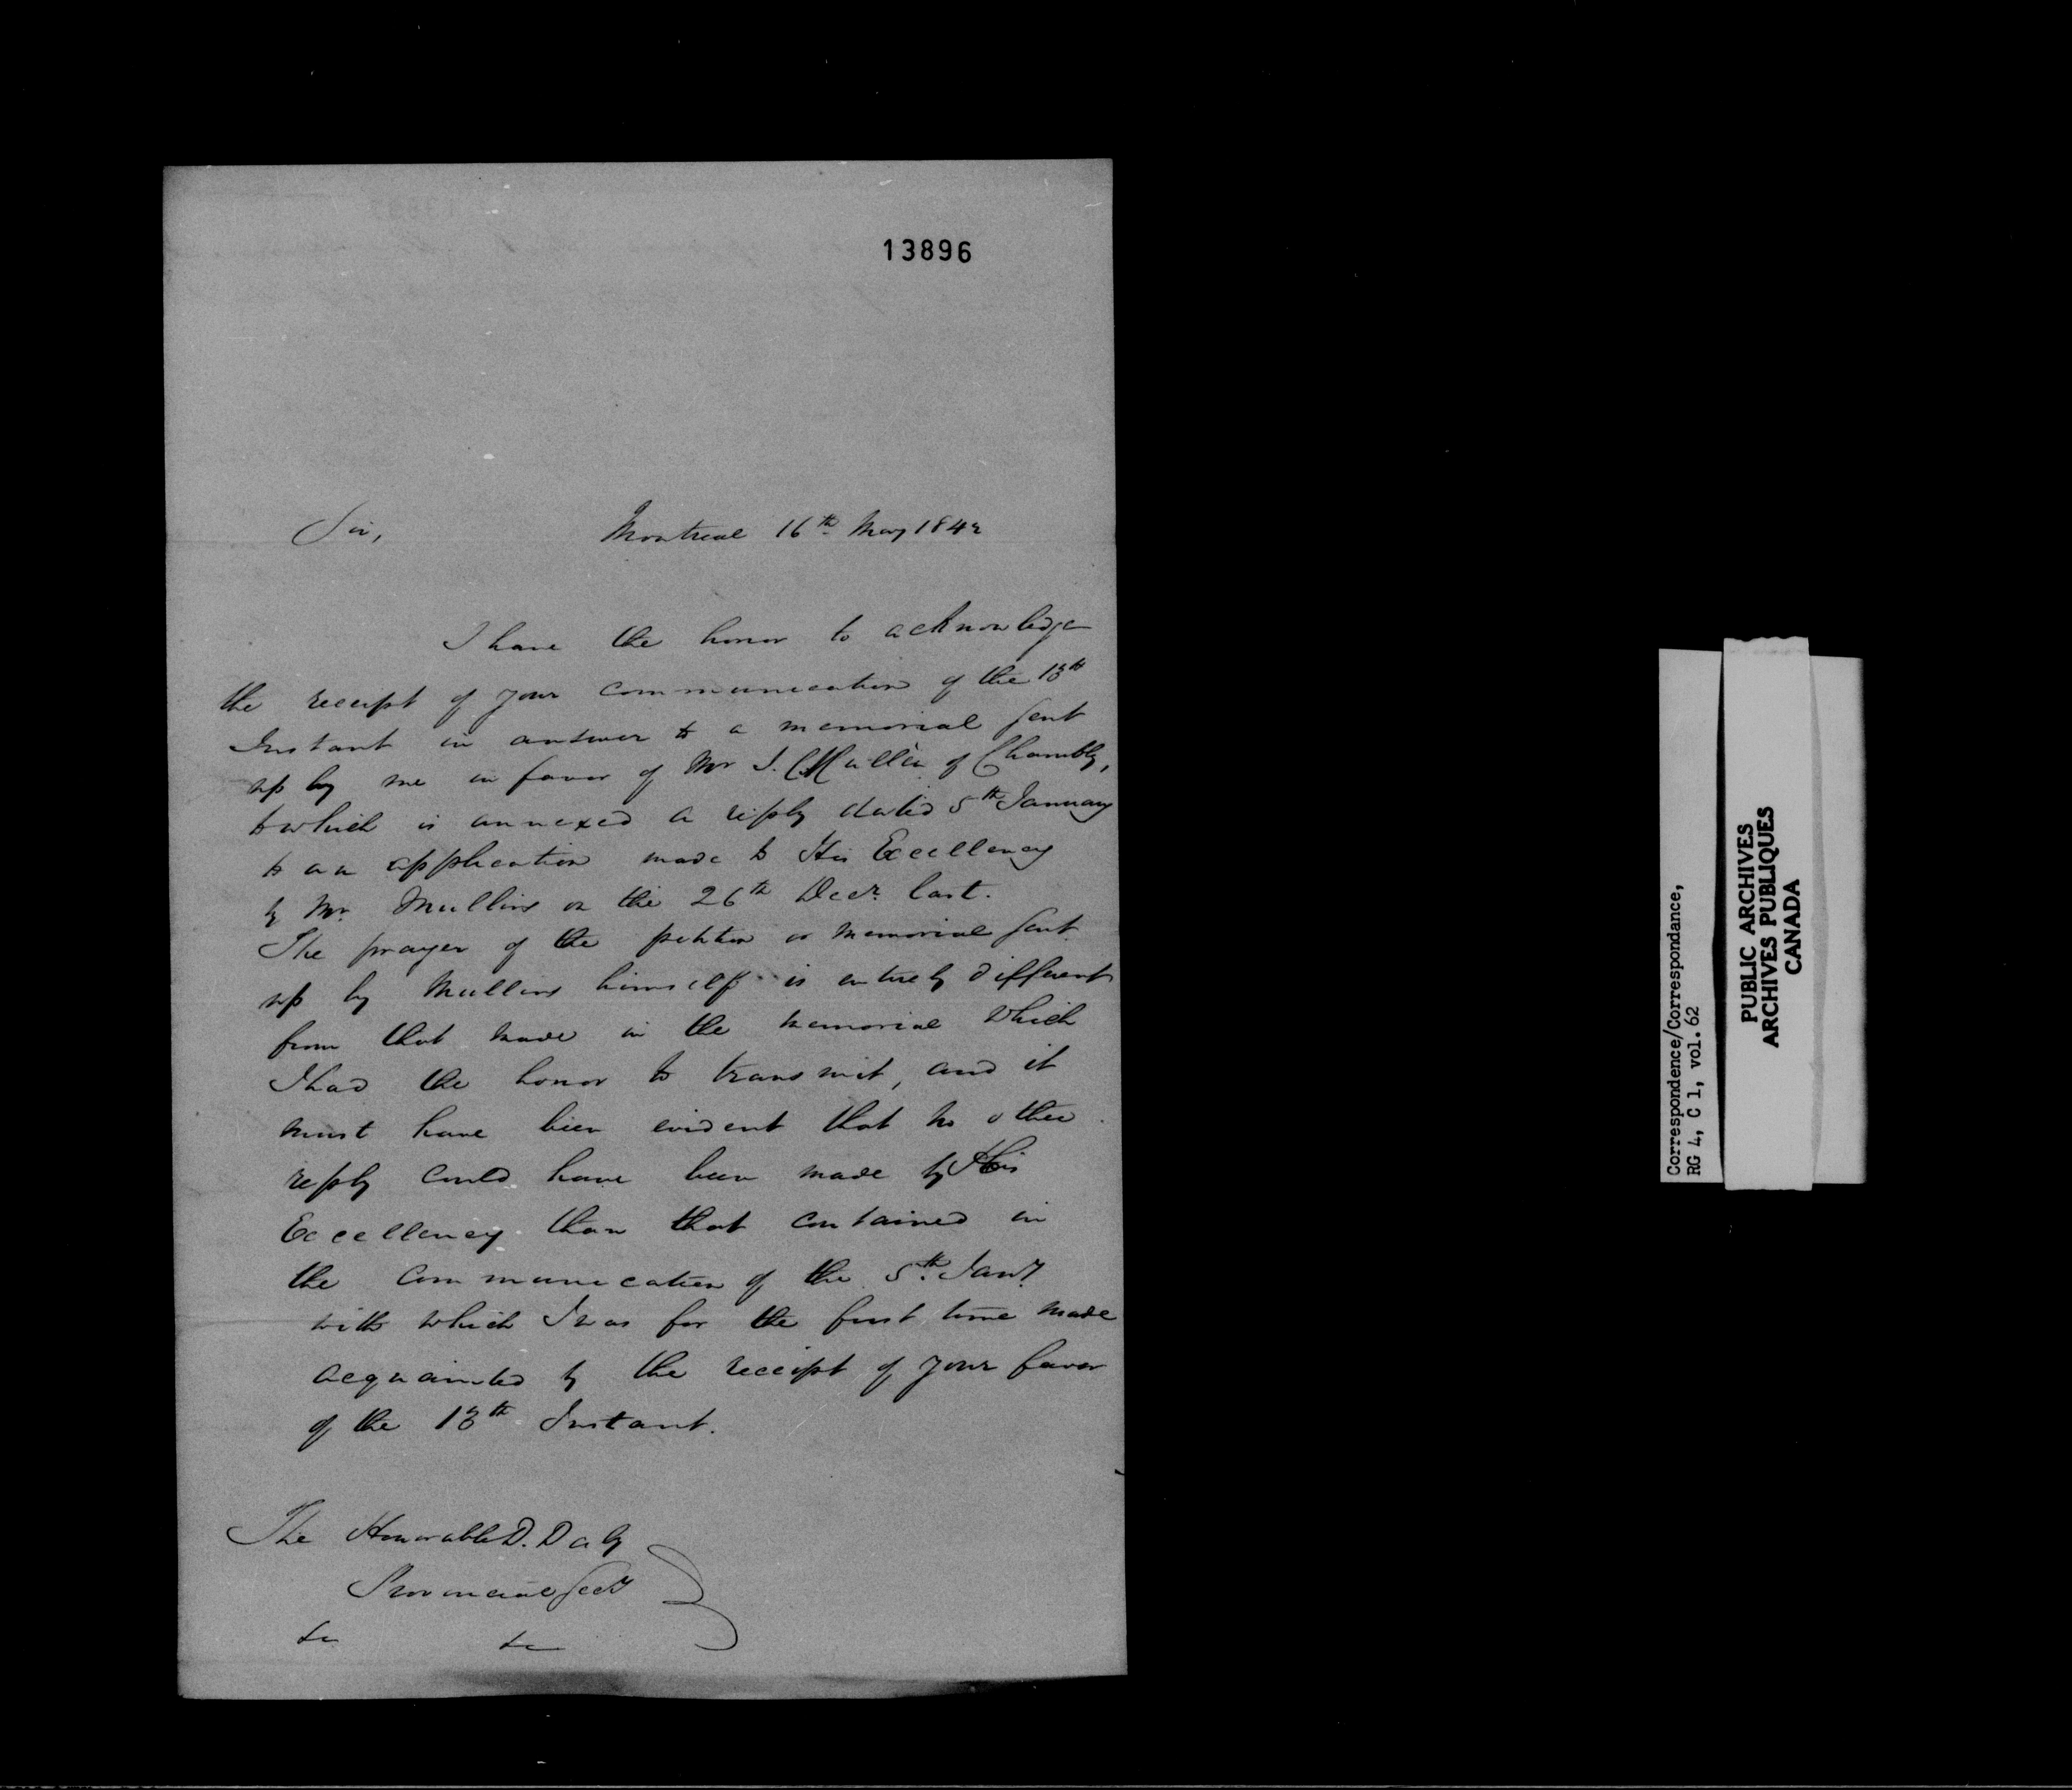 13896
Sir, Montreal 16th May 1842
I have the honor to acknowledge
the receipt of your communication of the 13th
Instant in answer to a memorial sent
up by me in favor of Mr J. Mullin of Chambly,
to which is annexed a reply dated 5th January
to an application made to His Excellency
by Mr. Mullins on the 26th Decr. last.
The prayer of the petition or memorial sent
up by Mullins himself is entirely different
from that made in the memorial which
I had the honor to transmit, and it
must have been evident that no other
reply could have been made by His
Excellency than that contained in
the communication of the 5th. Jany
with which I was for the first time made
acquainted by the receipt of your favor
of the 13th Instant.
The Honorable D. Daly
Provincial Secy
&c &c
Correspondence/Correspondance,
RG 4, C 1, vol. 62
PUBLIC ARCHIVES
ARCHIVES PUBLIQUES
CANADA